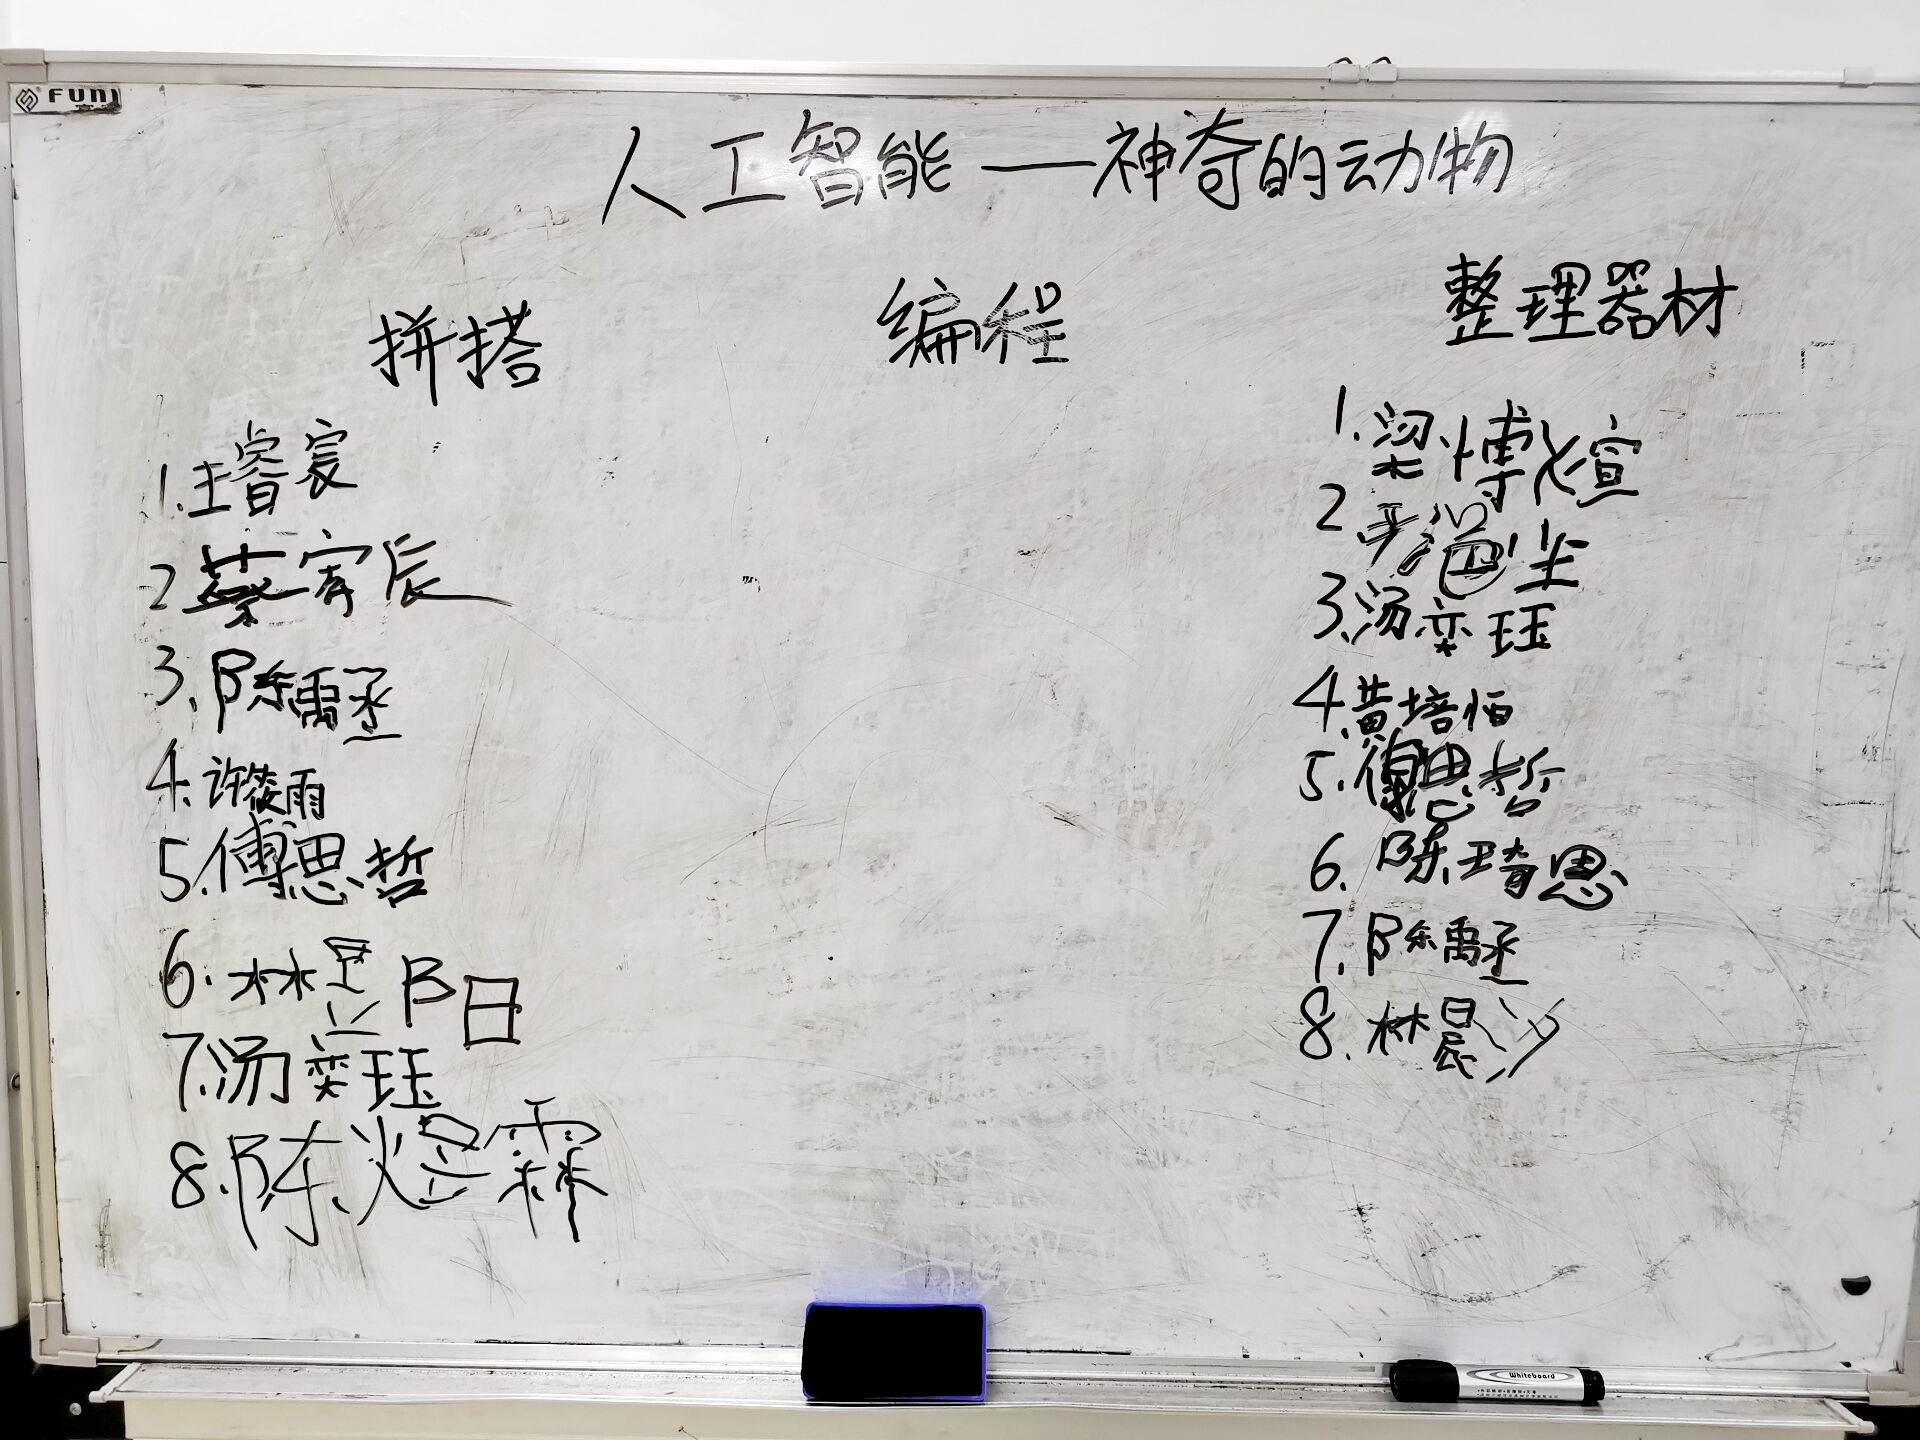 FUNJ
人工智能——神奇的动物
拼搭
编程
整理器材
1.王睿宸
2 蔡宥辰
3.陈禹丞
4.许筱雨
5.傅思哲
6.林昱阳
7.汤奕珏
8.陈煜霖
1.梁博煊
2
3.汤奕珏
4.黄培恒
5.傅思哲
6.陈琦恩
7.陈禹丞
8.林晨汐
Whiteboard